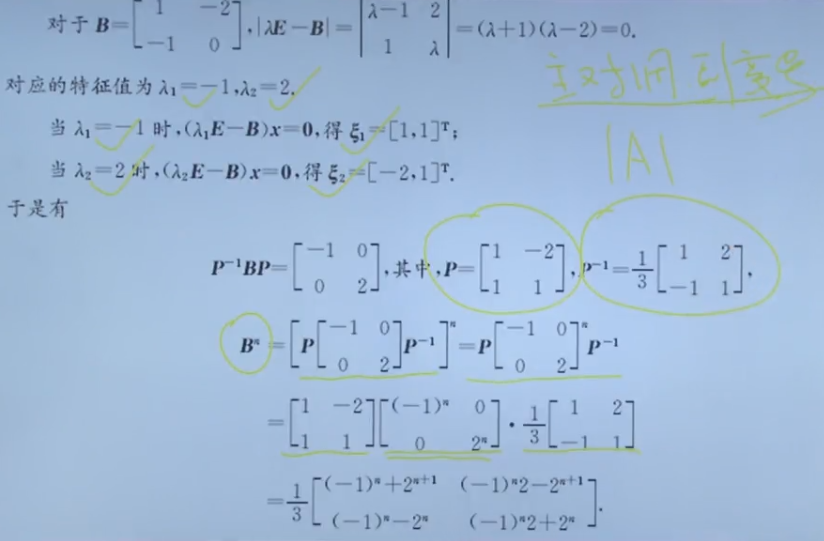 对于 B=[1 -2; -1 0], |λE-B|=|λ-1 2; 1 λ|=(λ+1)(λ-2)=0.
对应的特征值为 λ₁=-1,λ₂=2.
主对调 副变号
当 λ₁=-1 时,(λ₁E-B)x=0,得 ξ₁=[1,1]ᵀ;
|A|
当 λ₂=2 时,(λ₂E-B)x=0,得 ξ₂=[-2,1]ᵀ.
于是有
P⁻¹BP=[-1 0; 0 2],其中,P=[1 -2; 1 1],P⁻¹=1/3[1 2; -1 1],
Bⁿ=[P[-1 0; 0 2]P⁻¹]ⁿ=P[-1 0; 0 2]ⁿP⁻¹
=[1 -2; 1 1][(-1)ⁿ 0; 0 2ⁿ]·1/3[1 2; -1 1]
=1/3[(-1)ⁿ+2ⁿ⁺¹ (-1)ⁿ2-2ⁿ⁺¹; (-1)ⁿ-2ⁿ (-1)ⁿ2+2ⁿ].